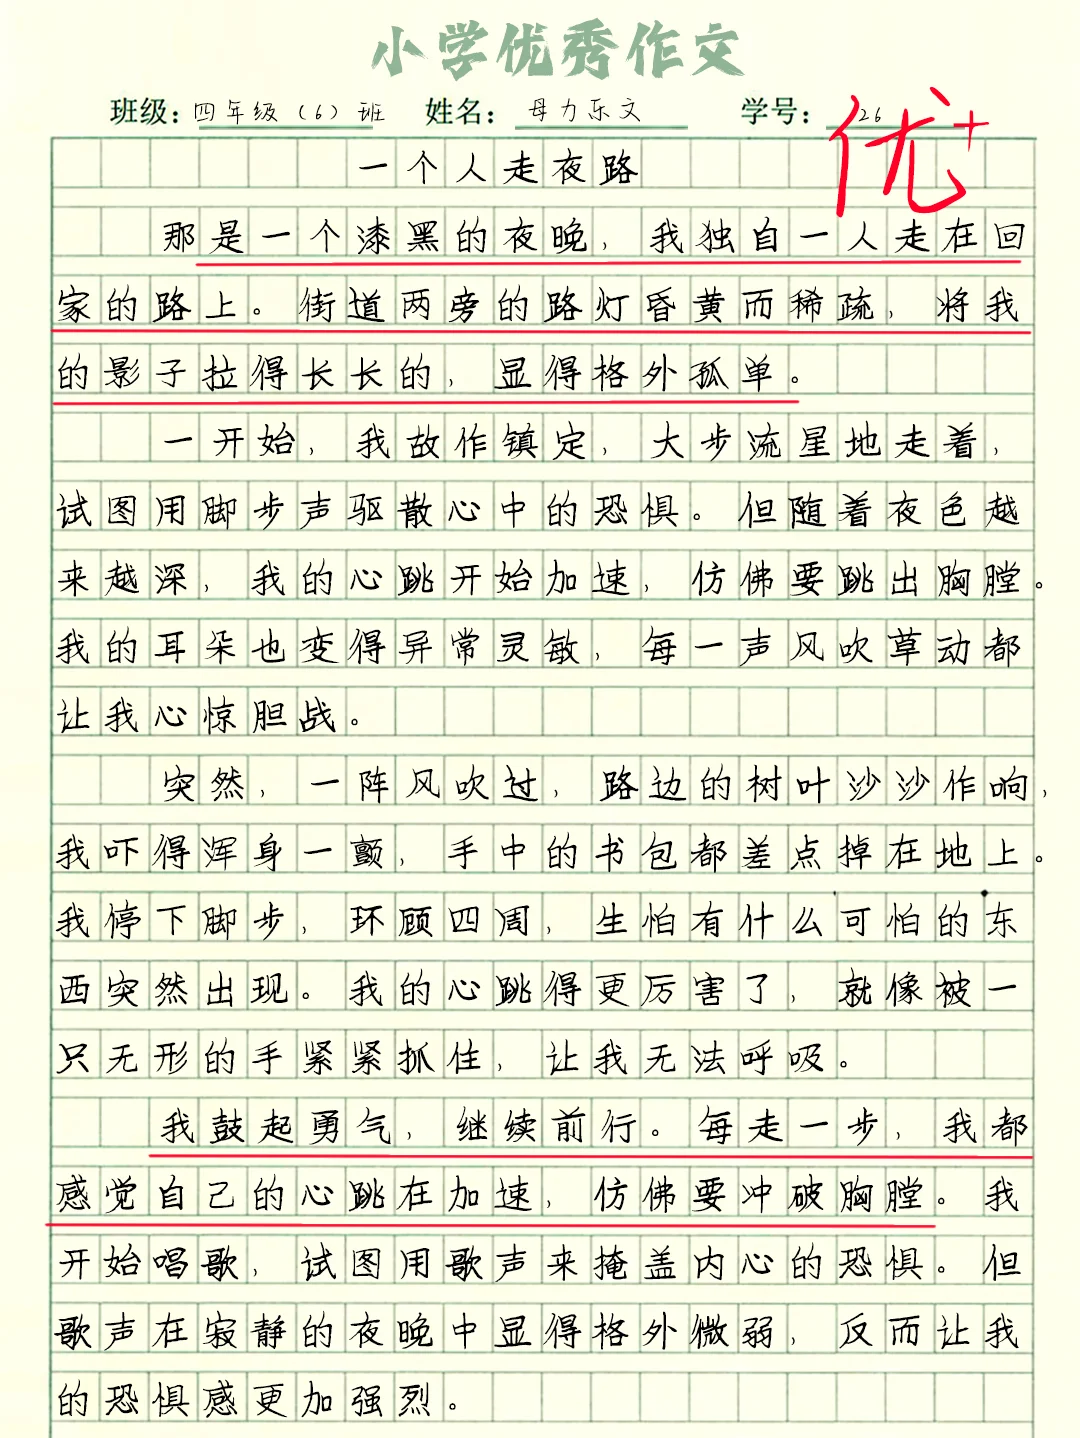 小学优秀作文
班级：四年级（6）班 姓名：母力乐文 学号：26
优+
一个人走夜路
那是一个漆黑的夜晚，我独自一人走在回
家的路上。街道两旁的路灯昏黄而稀疏，将我
的影子拉得长长的，显得格外孤单。
一开始，我故作镇定，大步流星地走着，
试图用脚步声驱散心中的恐惧。但随着夜色越
来越深，我的心跳开始加速，仿佛要跳出胸膛。
我的耳朵也变得异常灵敏，每一声风吹草动都
让我心惊胆战。
突然，一阵风吹过，路边的树叶沙沙作响，
我吓得浑身一颤，手中的书包都差点掉在地上。
我停下脚步，环顾四周，生怕有什么可怕的东
西突然出现。我的心跳得更厉害了，就像被一
只无形的手紧紧抓住，让我无法呼吸。
我鼓起勇气，继续前行。每走一步，我都
感觉自己的心跳在加速，仿佛要冲破胸膛。我
开始唱歌，试图用歌声来掩盖内心的恐惧。但
歌声在寂静的夜晚中显得格外微弱，反而让我
的恐惧感更加强烈。